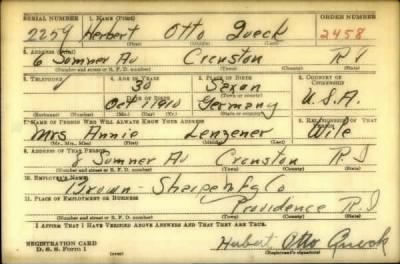 SERIAL NUMBER 1. NAME (Print) ORDER NUMBER
2259 Herbert Otto Queck 2458
(First) (Middle) (Last)
2. ADDRESS (Print)
6 Sumner Av Cranston R I
(Number and street or R. F. D. number) (Town) (County) (State)
3. TELEPHONE 4. AGE IN YEARS 5. PLACE OF BIRTH 6. COUNTRY OF CITIZENSHIP
30 Saxon
DATE OF BIRTH (Town or county)
Oct 1 1910 Germany U.S.A.
(Exchange) (Number) (Mo.) (Day) (Yr.) (State or country)
7. NAME OF PERSON WHO WILL ALWAYS KNOW YOUR ADDRESS 8. RELATIONSHIP OF THAT PERSON
Mrs Annie Wife
(Mr., Mrs., Miss) (First) (Middle) (Last)
9. ADDRESS OF THAT PERSON
6 Sumner Av Cranston R. I
(Number and street or R. F. D. number) (Town) (County) (State)
10. EMPLOYER'S NAME
Brown - Sharpe Mfg Co
11. PLACE OF EMPLOYMENT OR BUSINESS
Providence R. I
(Number and street or R. F. D. number) (Town) (County) (State)
I AFFIRM THAT I HAVE VERIFIED ABOVE ANSWERS AND THAT THEY ARE TRUE.
REGISTRATION CARD
D. S. S. Form 1 Herbert Otto Queck
(Registrant's signature)